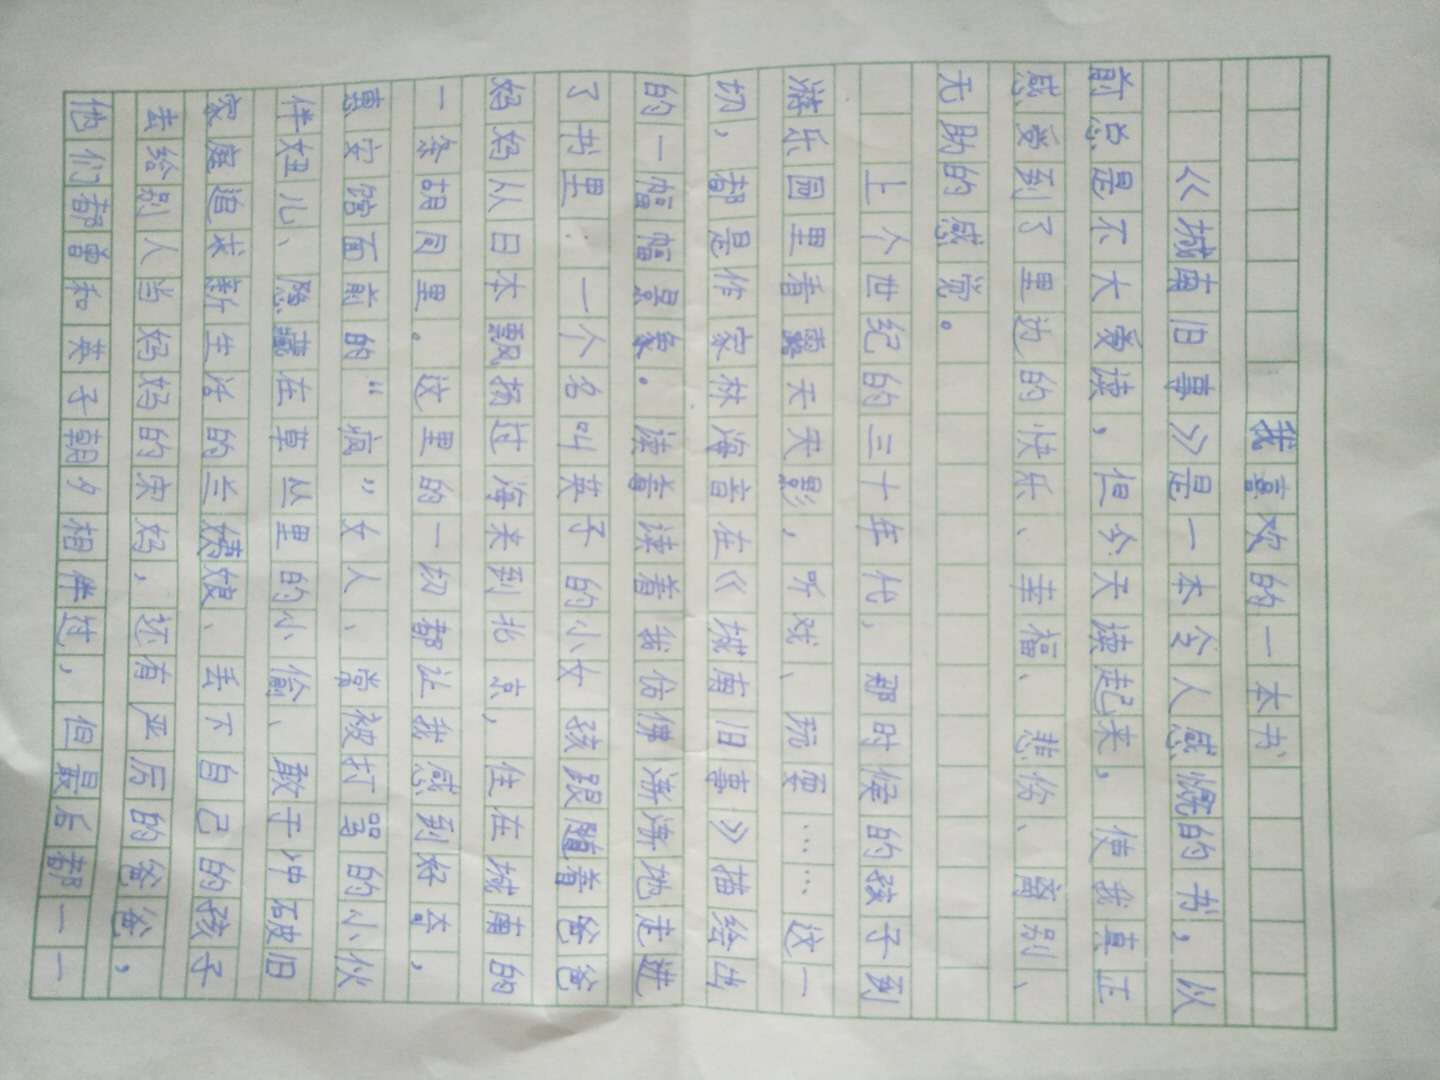 我喜欢的一本书
《城南旧事》是一本令人感慨的书，以
前总是不大爱读，但今天读起来，使我真正
感受到了里边的快乐、幸福、悲伤、离别、
无助的感觉。
上个世纪的三十年代，那时候的孩子到
游乐园里看露天天影，听戏、玩耍……这一
切，都是作家林海音在《城南旧事》描绘出
的一幅幅景象。读着读着我仿佛渐渐地走进
了书里：一个名叫英子的小女孩跟随着爸爸
妈妈从日本飘扬过海来到北京，住在城南的
一条胡同里。这里的一切都让我感到好奇，
惠安馆面前的“疯”女人、常被打骂的小伙
伴妞儿、隐藏在草丛里的小偷、敢于冲破旧
家庭追求新生活的兰姨娘、丢下自己的孩子
去给别人当妈妈的宋妈，还有严厉的爸爸，
他们都曾和英子朝夕相伴过，但最后都一一